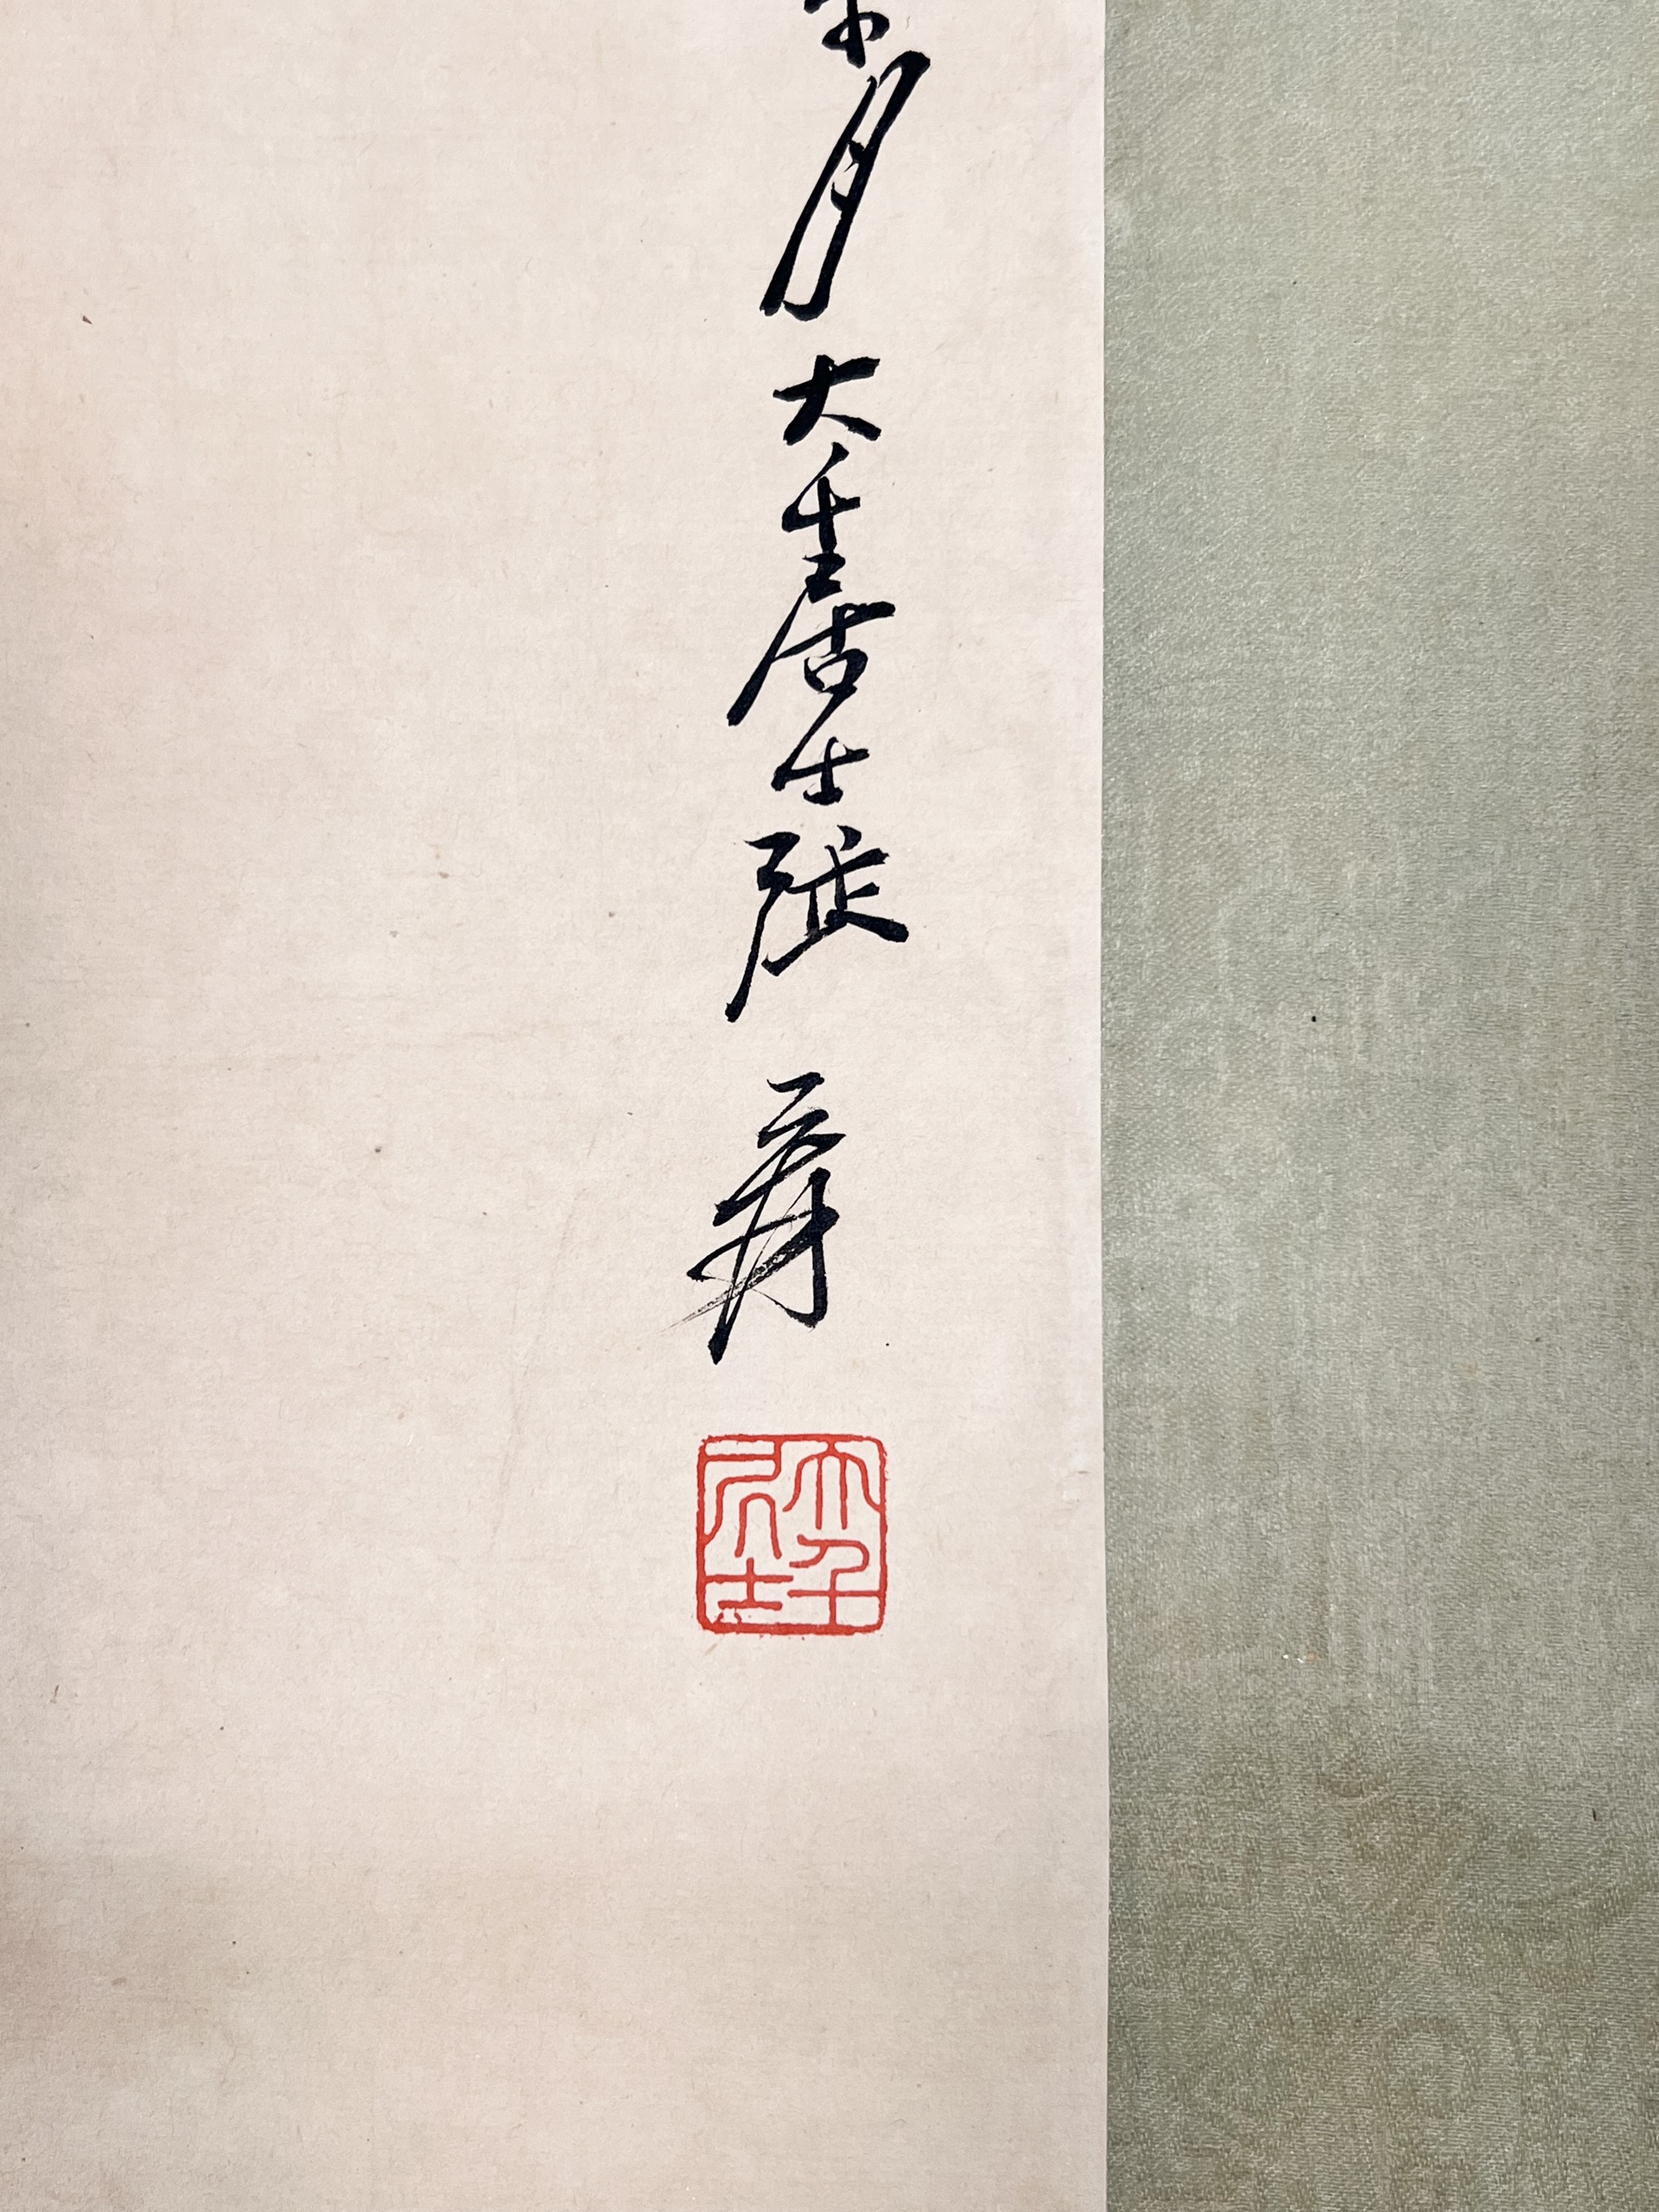 月大千居士張爰
大千居士